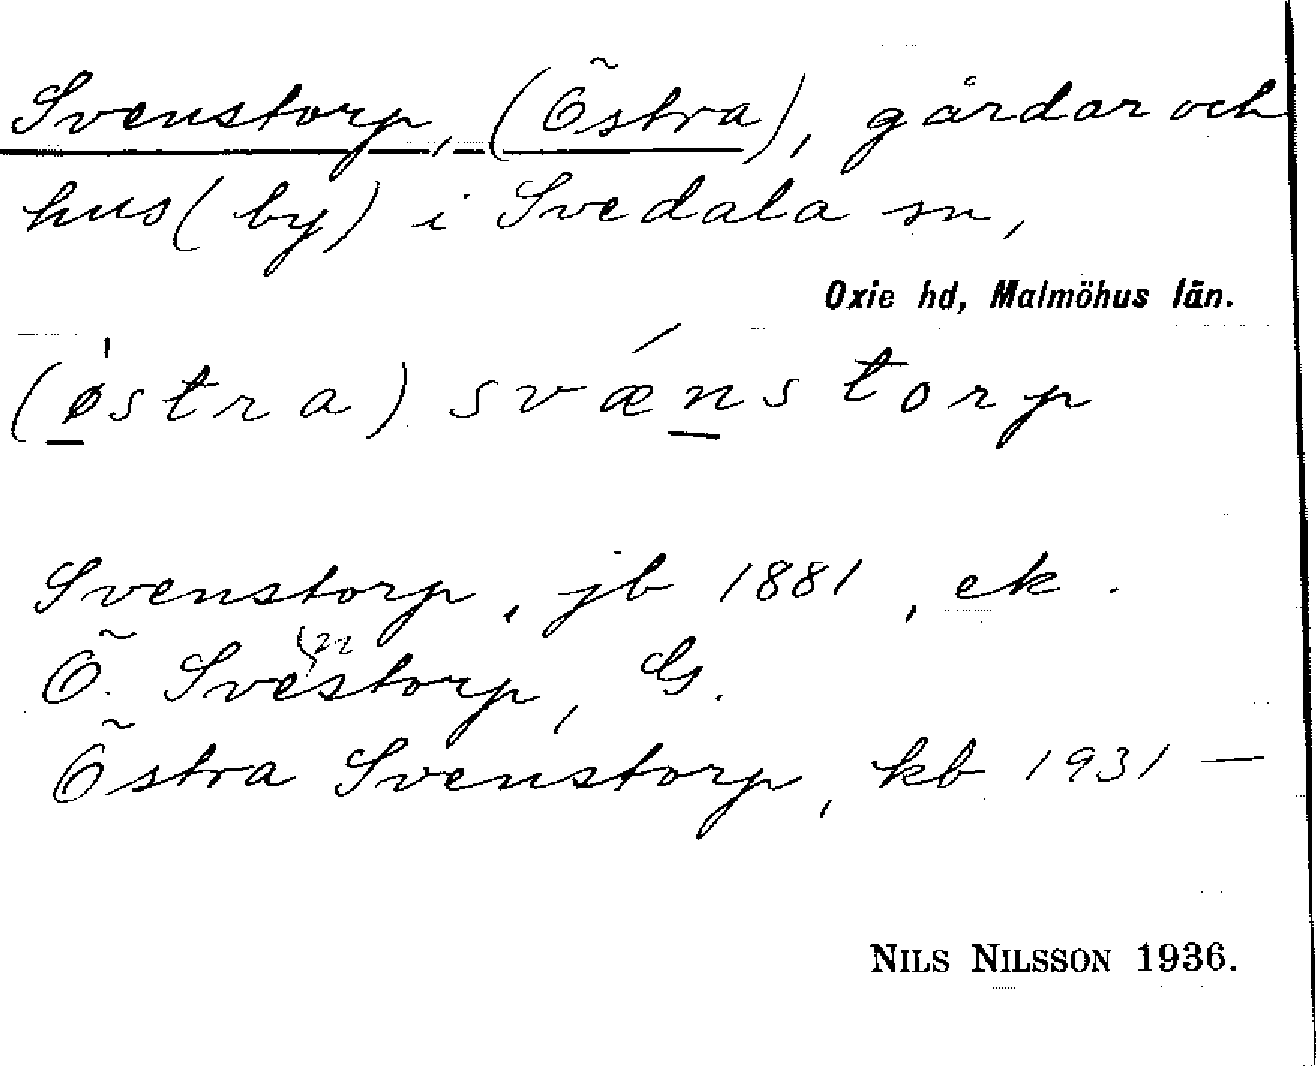 Svenstorp, (Östra), gårdar och
hus (by) i Svedala sn,
Oxie hd, Malmöhus län.
(østra) svænstorp
Svenstorp, jb 1881, ek.
Ö. Svenstorp, G.
Östra Svenstorp, kb 1931 —
NILS NILSSON 1936.